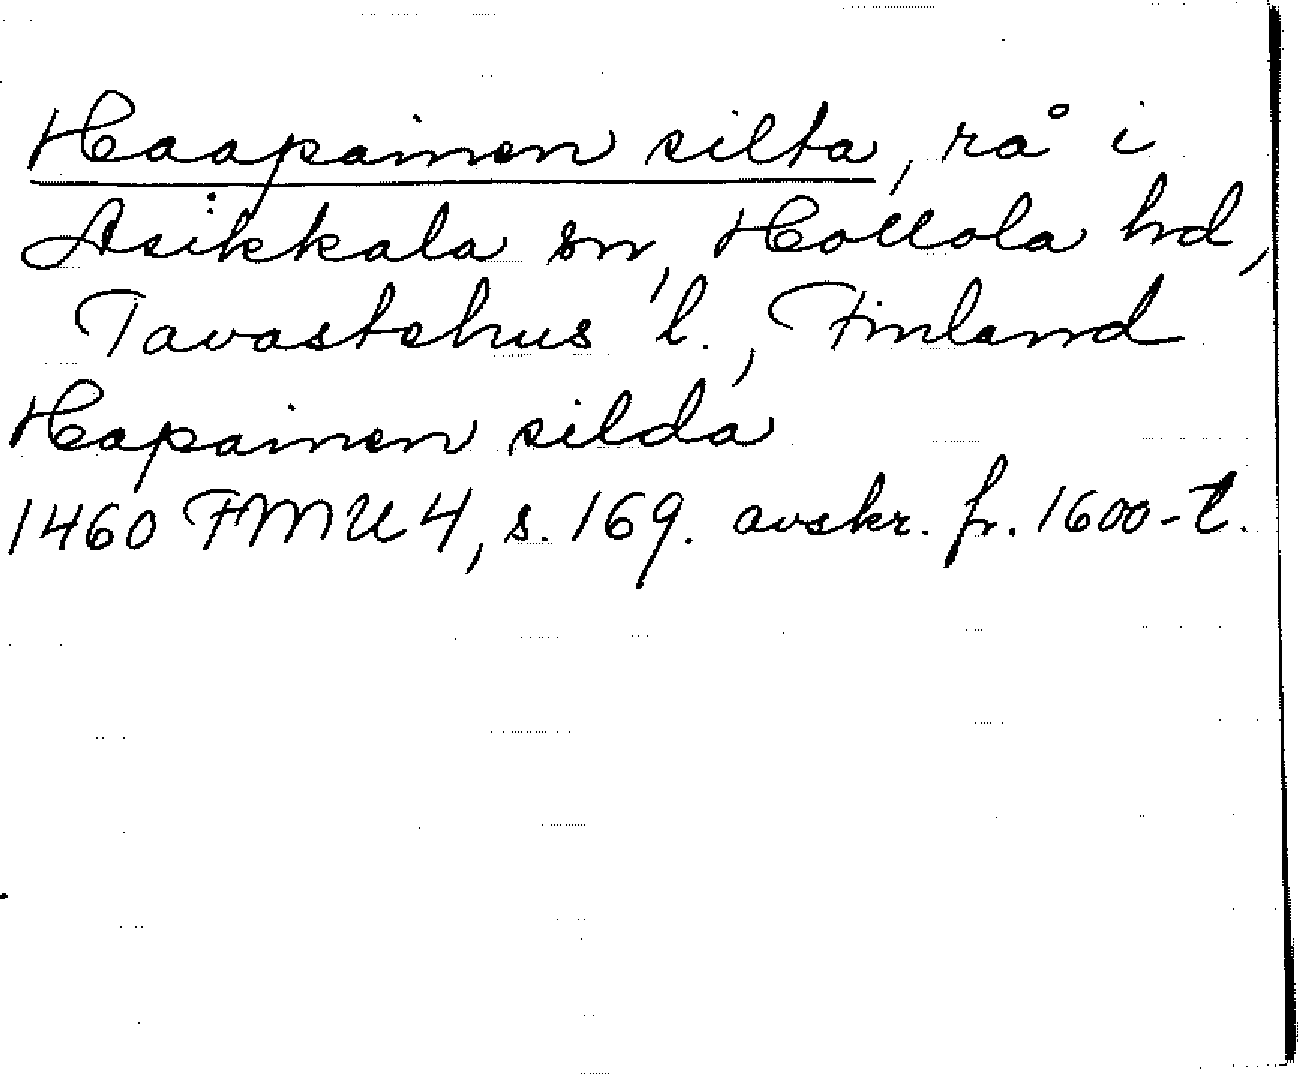 Haapainen silta, rå i
Asikkala sn, Hollola hd,
Tavastehus l., Finland
Hapainen silda
1460 FMU 4, s. 169. avskr. fr. 1600-t.